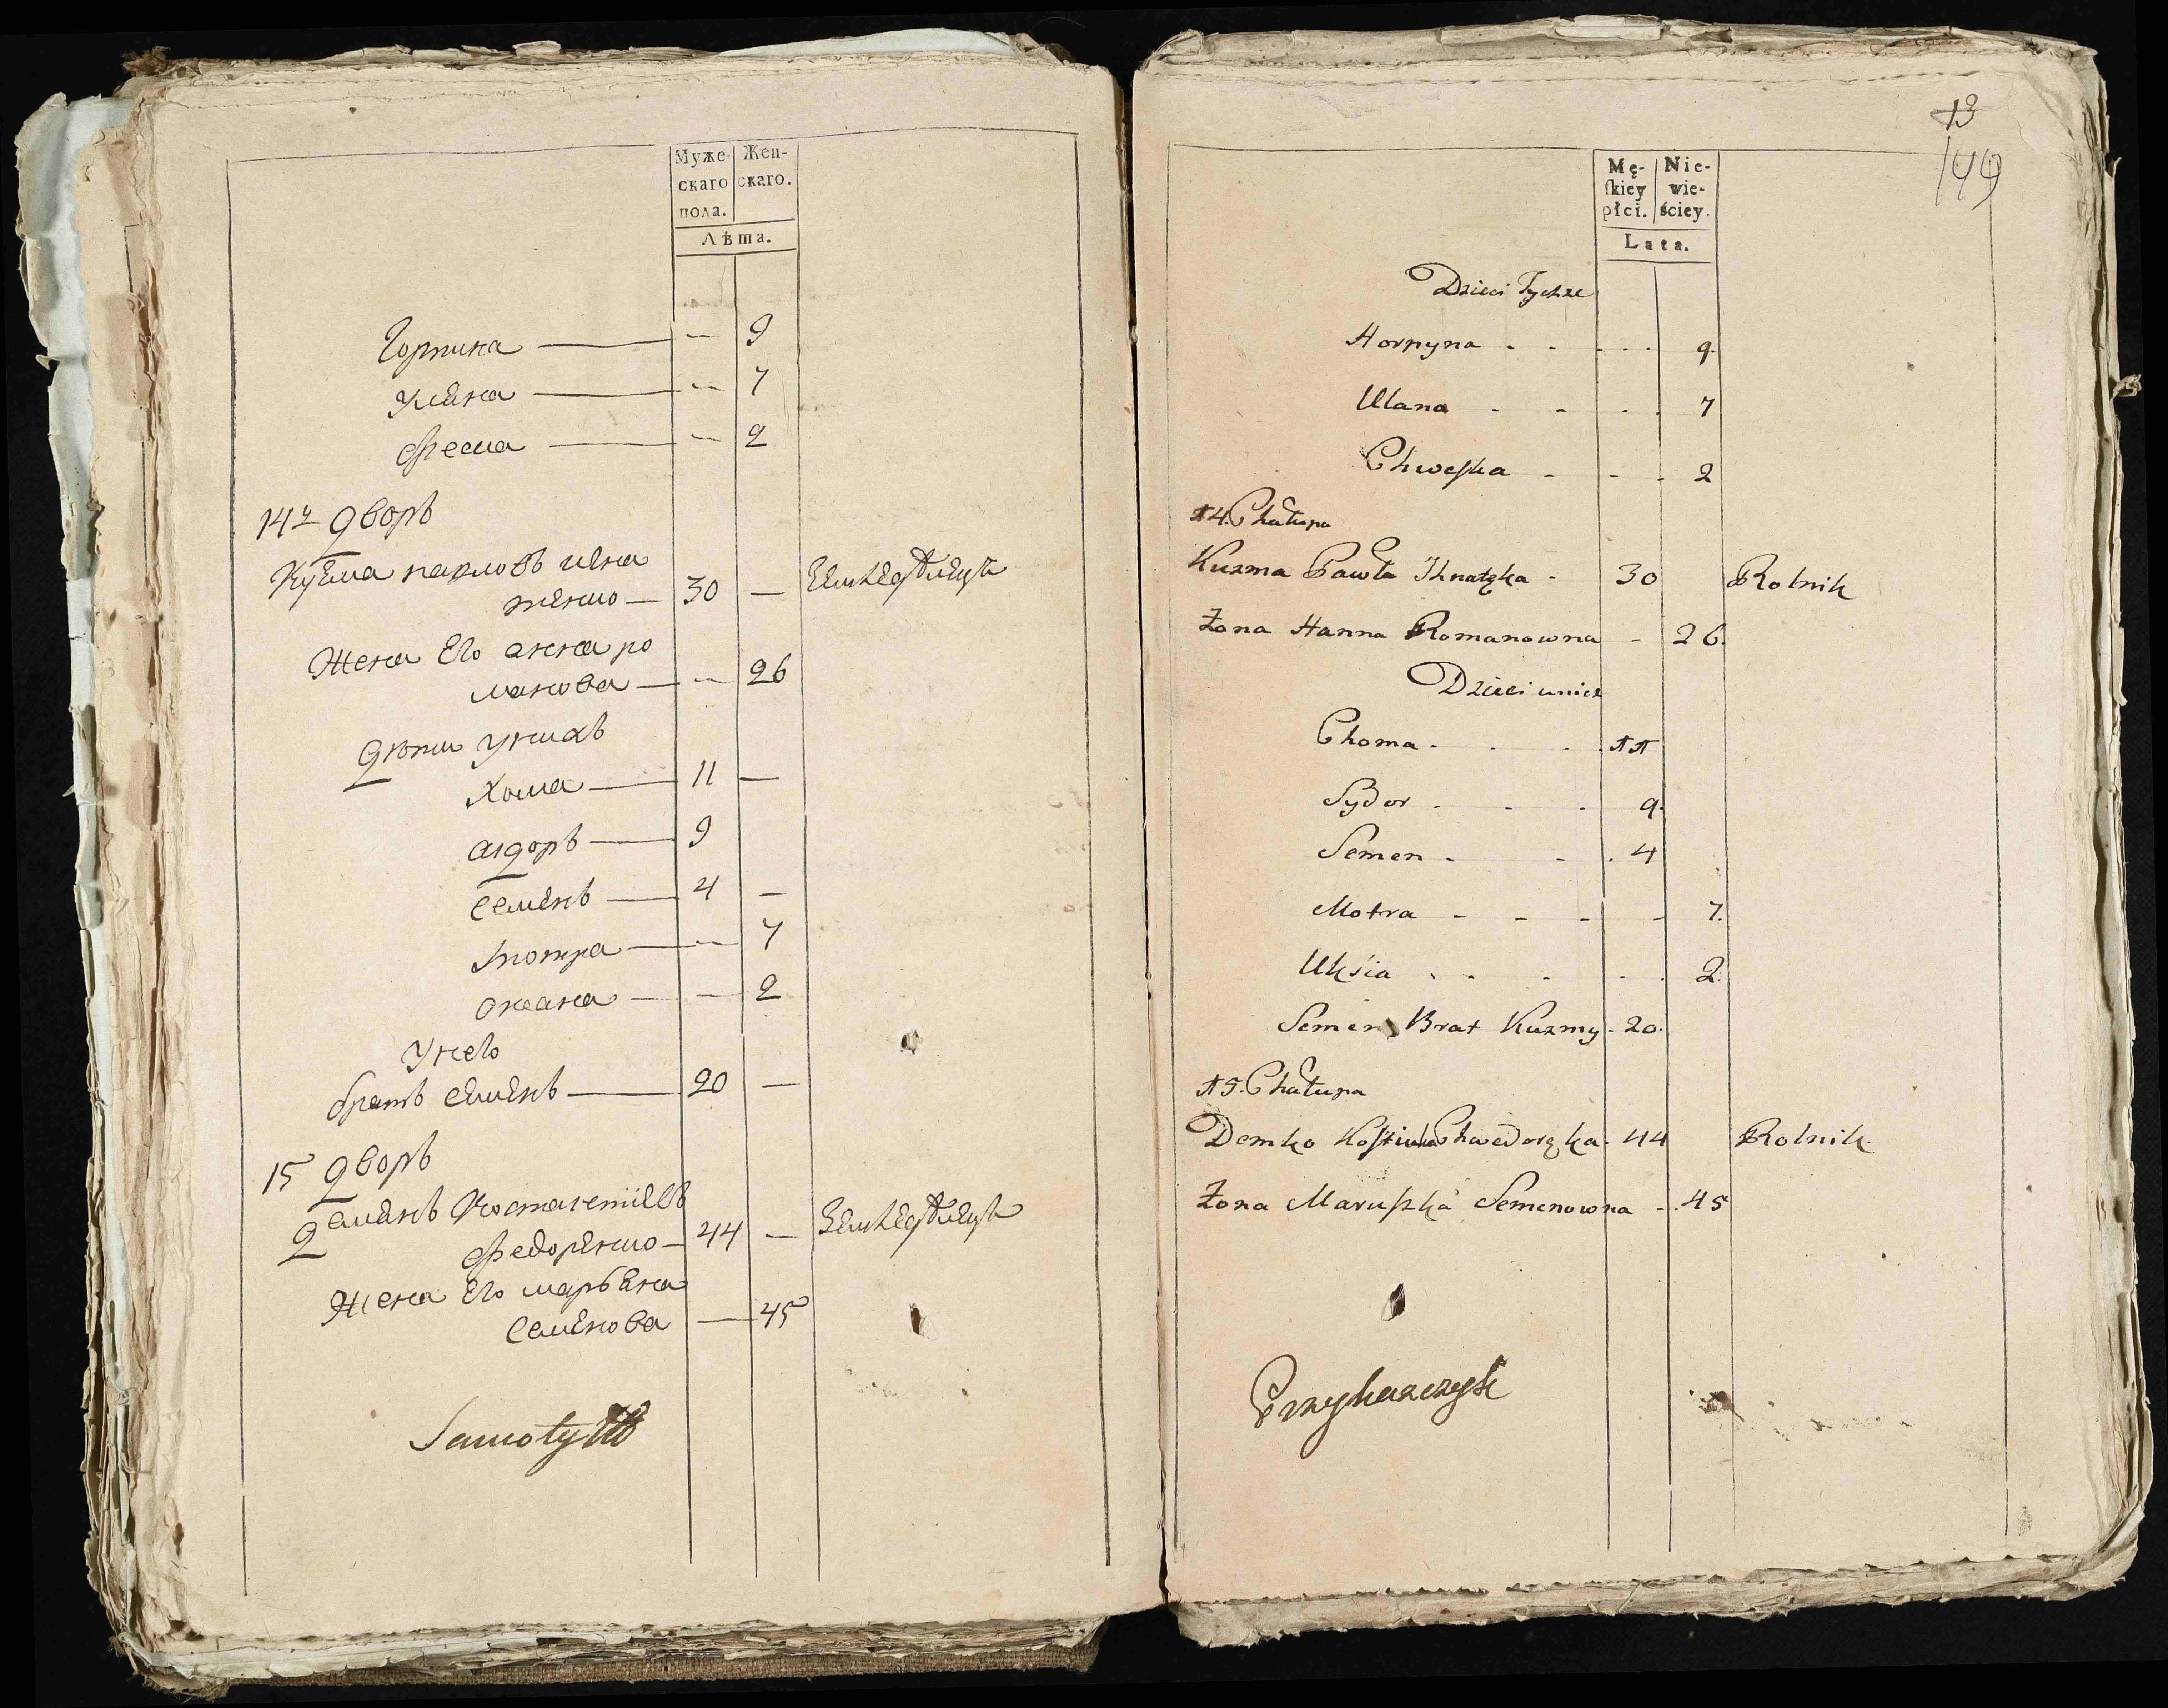 Муже-
скаго
пола.
Жен-
скаго.
Лѣта.
Горпина — 9
Уляна — 7
Феска — 2
14й дворъ
Кузма павловъ игна
тенко — 30 — земледѣлецъ
Жена Его анна ро
манова — 26
дѣти у нихъ
Хома — 11 —
сидоръ — 9
семенъ — 4 —
мотра — 7
оксана — 2
У него
братъ семенъ — 20 —
15 дворъ
демянъ Костантіевъ
федоренко — 44 — земледѣлецъ
Жена Его марьяна
семенова — 45
13
149
Mę-
ſkiey
płci.
Nie-
wie-
ściey.
Lata.
Dzieci Tychże
Horpyna - - - - 9.
Ulana - - - - 7
Chweſka - - - 2
14. Chałupa
Kuzma Pawła Ihnatęka - 30 Rolnik
Żona Hanna Romanowna - 26.
Dzieci u nich
Choma - - - 11
Sydor - - - 9.
Semen - - - 4
Motra - - - - 7.
Uksia - - - - 2.
Semen Brat Kuzmy - 20.
15. Chałupa
Demko Chwedoręka - 44 Rolnik.
Żona Maruſzka Semenowna - 45